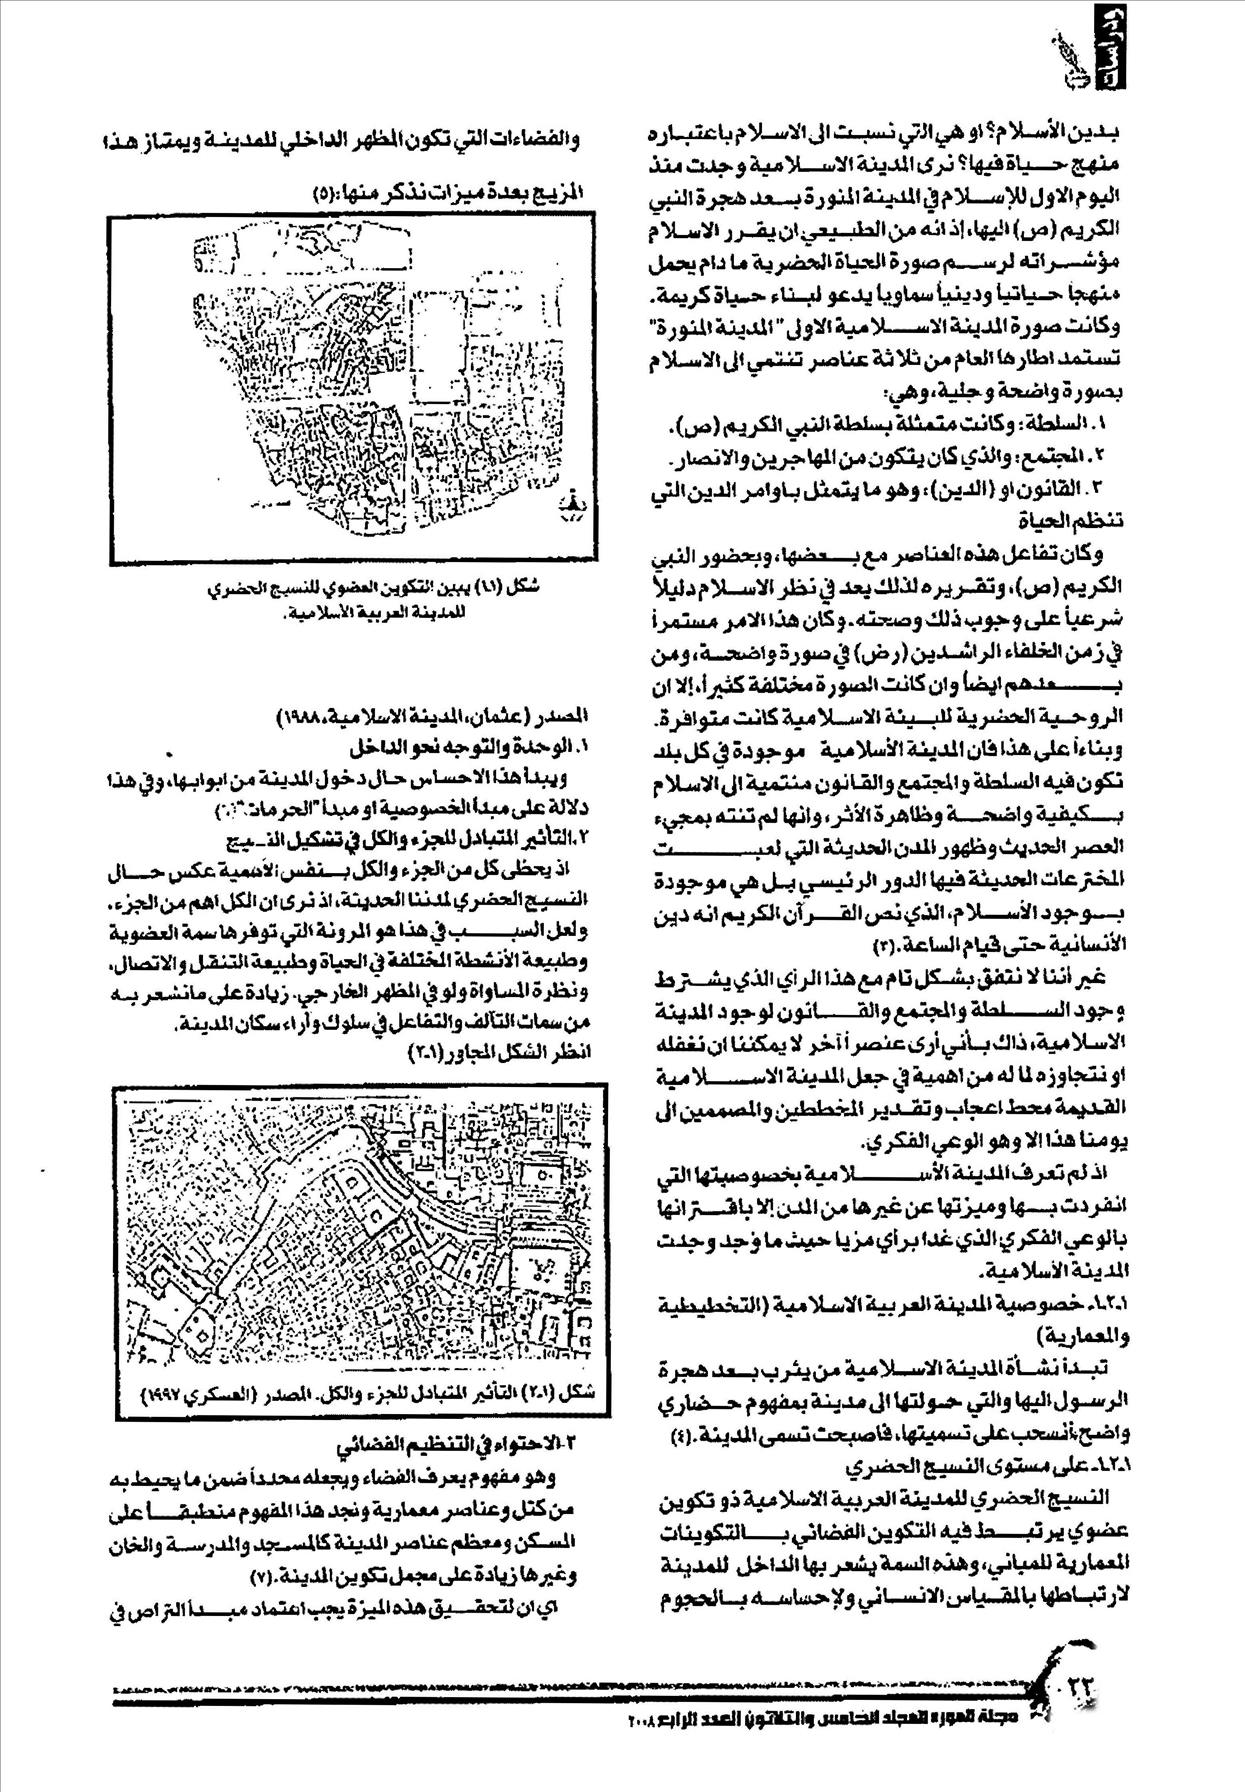 ودراسات
بدين الأسلام؟ او هي التي نسبت الى الاسلام باعتباره
منهج حياة فيها؟ نرى المدينة الاسلامية وجدت منذ
اليوم الاول للإسلام في المدينة المنورة بعد هجرة النبي
الكريم (ص) اليها، إذ انه من الطبيعي ان يقرر الاسلام
مؤشراته لرسم صورة الحياة الحضرية ما دام يحمل
منهجاً حياتياً ودينياً سماوياً يدعو لبناء حياة كريمة.
وكانت صورة المدينة الاسلامية الاولى "المدينة المنورة"
تستمد اطارها العام من ثلاثة عناصر تنتمي الى الاسلام
بصورة واضحة وجلية، وهي:
١. السلطة: وكانت متمثلة بسلطة النبي الكريم (ص).
٢. المجتمع: والذي كان يتكون من المهاجرين والانصار.
٣. القانون او (الدين): وهو ما يتمثل باوامر الدين التي
تنظم الحياة
وكان تفاعل هذه العناصر مع بعضها، وبحضور النبي
الكريم (ص)، وتقريره لذلك يعد في نظر الاسلام دليلاً
شرعياً على وجوب ذلك وصحته. وكان هذا الامر مستمراً
في زمن الخلفاء الراشدين (رض) في صورة واضحة، ومن
بعدهم ايضاً وان كانت الصورة مختلفة كثيراً، إلا ان
الروحية الحضرية للبيئة الاسلامية كانت متوافرة.
وبناءاً على هذا فان المدينة الأسلامية موجودة في كل بلد
تكون فيه السلطة والمجتمع والقانون منتمية الى الاسلام
بكيفية واضحة وظاهرة الأثر، وانها لم تنته بمجيء
العصر الحديث وظهور المدن الحديثة التي لعبت
المخترعات الحديثة فيها الدور الرئيسي بل هي موجودة
بوجود الأسلام، الذي نص القرآن الكريم انه دين
الأنسانية حتى قيام الساعة.(٣)
غير أننا لا نتفق بشكل تام مع هذا الرأي الذي يشترط
وجود السلطة والمجتمع والقانون لوجود المدينة
الاسلامية، ذاك بأني أرى عنصراً آخر لا يمكننا ان نغفله
او نتجاوزه لما له من اهمية في جعل المدينة الاسلامية
القديمة محط اعجاب وتقدير المخططين والمصممين الى
يومنا هذا الا وهو الوعي الفكري.
اذ لم تعرف المدينة الأسلامية بخصوصيتها التي
انفردت بها وميزتها عن غيرها من المدن إلا باقترانها
بالوعي الفكري الذي غدا برأي مزيا حيث ما وجد وجدت
المدينة الأسلامية.
١.٢.١. خصوصية المدينة العربية الاسلامية (التخطيطية
والمعمارية)
تبدأ نشأة المدينة الاسلامية من يثرب بعد هجرة
الرسول اليها والتي حولتها الى مدينة بمفهوم حضاري
واضح، أنسحب على تسميتها، فاصبحت تسمى المدينة.(٤)
١.٢.١. على مستوى النسيج الحضري
النسيج الحضري للمدينة العربية الاسلامية ذو تكوين
عضوي يرتبط فيه التكوين الفضائي بالتكوينات
المعمارية للمباني، وهذه السمة يشعر بها الداخل للمدينة
لارتباطها بالمقياس الانساني ولإحساسه بالحجوم
والفضاءات التي تكون المظهر الداخلي للمدينة ويمتاز هذا
المزيج بعدة ميزات نذكر منها:(٥)
شكل (١.١) يبين التكوين العضوي للنسيج الحضري
للمدينة العربية الأسلامية.
المصدر (عثمان، المدينة الاسلامية، ١٩٨٨)
١. الوحدة والتوجه نحو الداخل
ويبدأ هذا الاحساس حال دخول المدينة من ابوابها، وفي هذا
دلالة على مبدأ الخصوصية او مبدأ "الحرمات"
٢. التأثير المتبادل للجزء والكل في تشكيل النسيج
اذ يحظى كل من الجزء والكل بنفس الأهمية عكس حال
النسيج الحضري لمدننا الحديثة، اذ نرى ان الكل اهم من الجزء،
ولعل السبب في هذا هو المرونة التي توفرها سمة العضوية
وطبيعة الأنشطة المختلفة في الحياة وطبيعة التنقل والاتصال،
ونظرة المساواة ولو في المظهر الخارجي. زيادة على مانشعر به
من سمات التآلف والتفاعل في سلوك وآراء سكان المدينة.
انظر الشكل المجاور (٢.١)
شكل (٢.١) التأثير المتبادل للجزء والكل. المصدر (العسكري ١٩٩٧)
٣.الاحتواء في التنظيم الفضائي
وهو مفهوم يعرف الفضاء ويجعله محدداً ضمن ما يحيط به
من كتل وعناصر معمارية ونجد هذا المفهوم منطبقاً على
المسكن ومعظم عناصر المدينة كالمسجد والمدرسة والخان
وغيرها زيادة على مجمل تكوين المدينة.(٧)
اي ان لتحقيق هذه الميزة يجب اعتماد مبدأ التراص في
٢٢
مجلة المورد المجلد الخامس والثلاثون العدد الرابع ٢٠٠٨